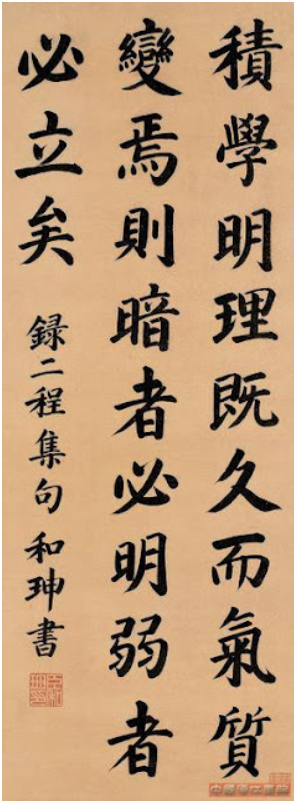 積學明理既久而氣質
變焉則暗者必明弱者
必立矣
録二程集句 和珅書